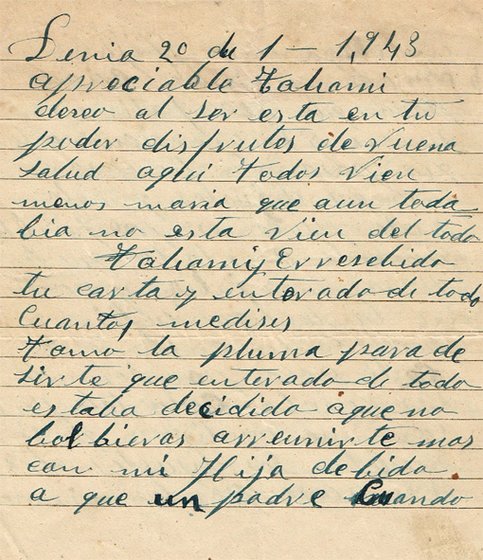 Lenia 20 de 1 - 1,943
apreciable Tahami
deseo al ser esta en tu
poder disfrutes de vuena
salud aqui todos vien
menos maria que aun toda
bia no esta vien del todo
Tahami Erresebido
tu carta y enterado de todo
Cuantos medises
tomo la pluma para de
sirte que enterado de todo
estaba decidido aque no
bolbieras arreunirte mas
con mi Hija debido
a que un padre Cuando